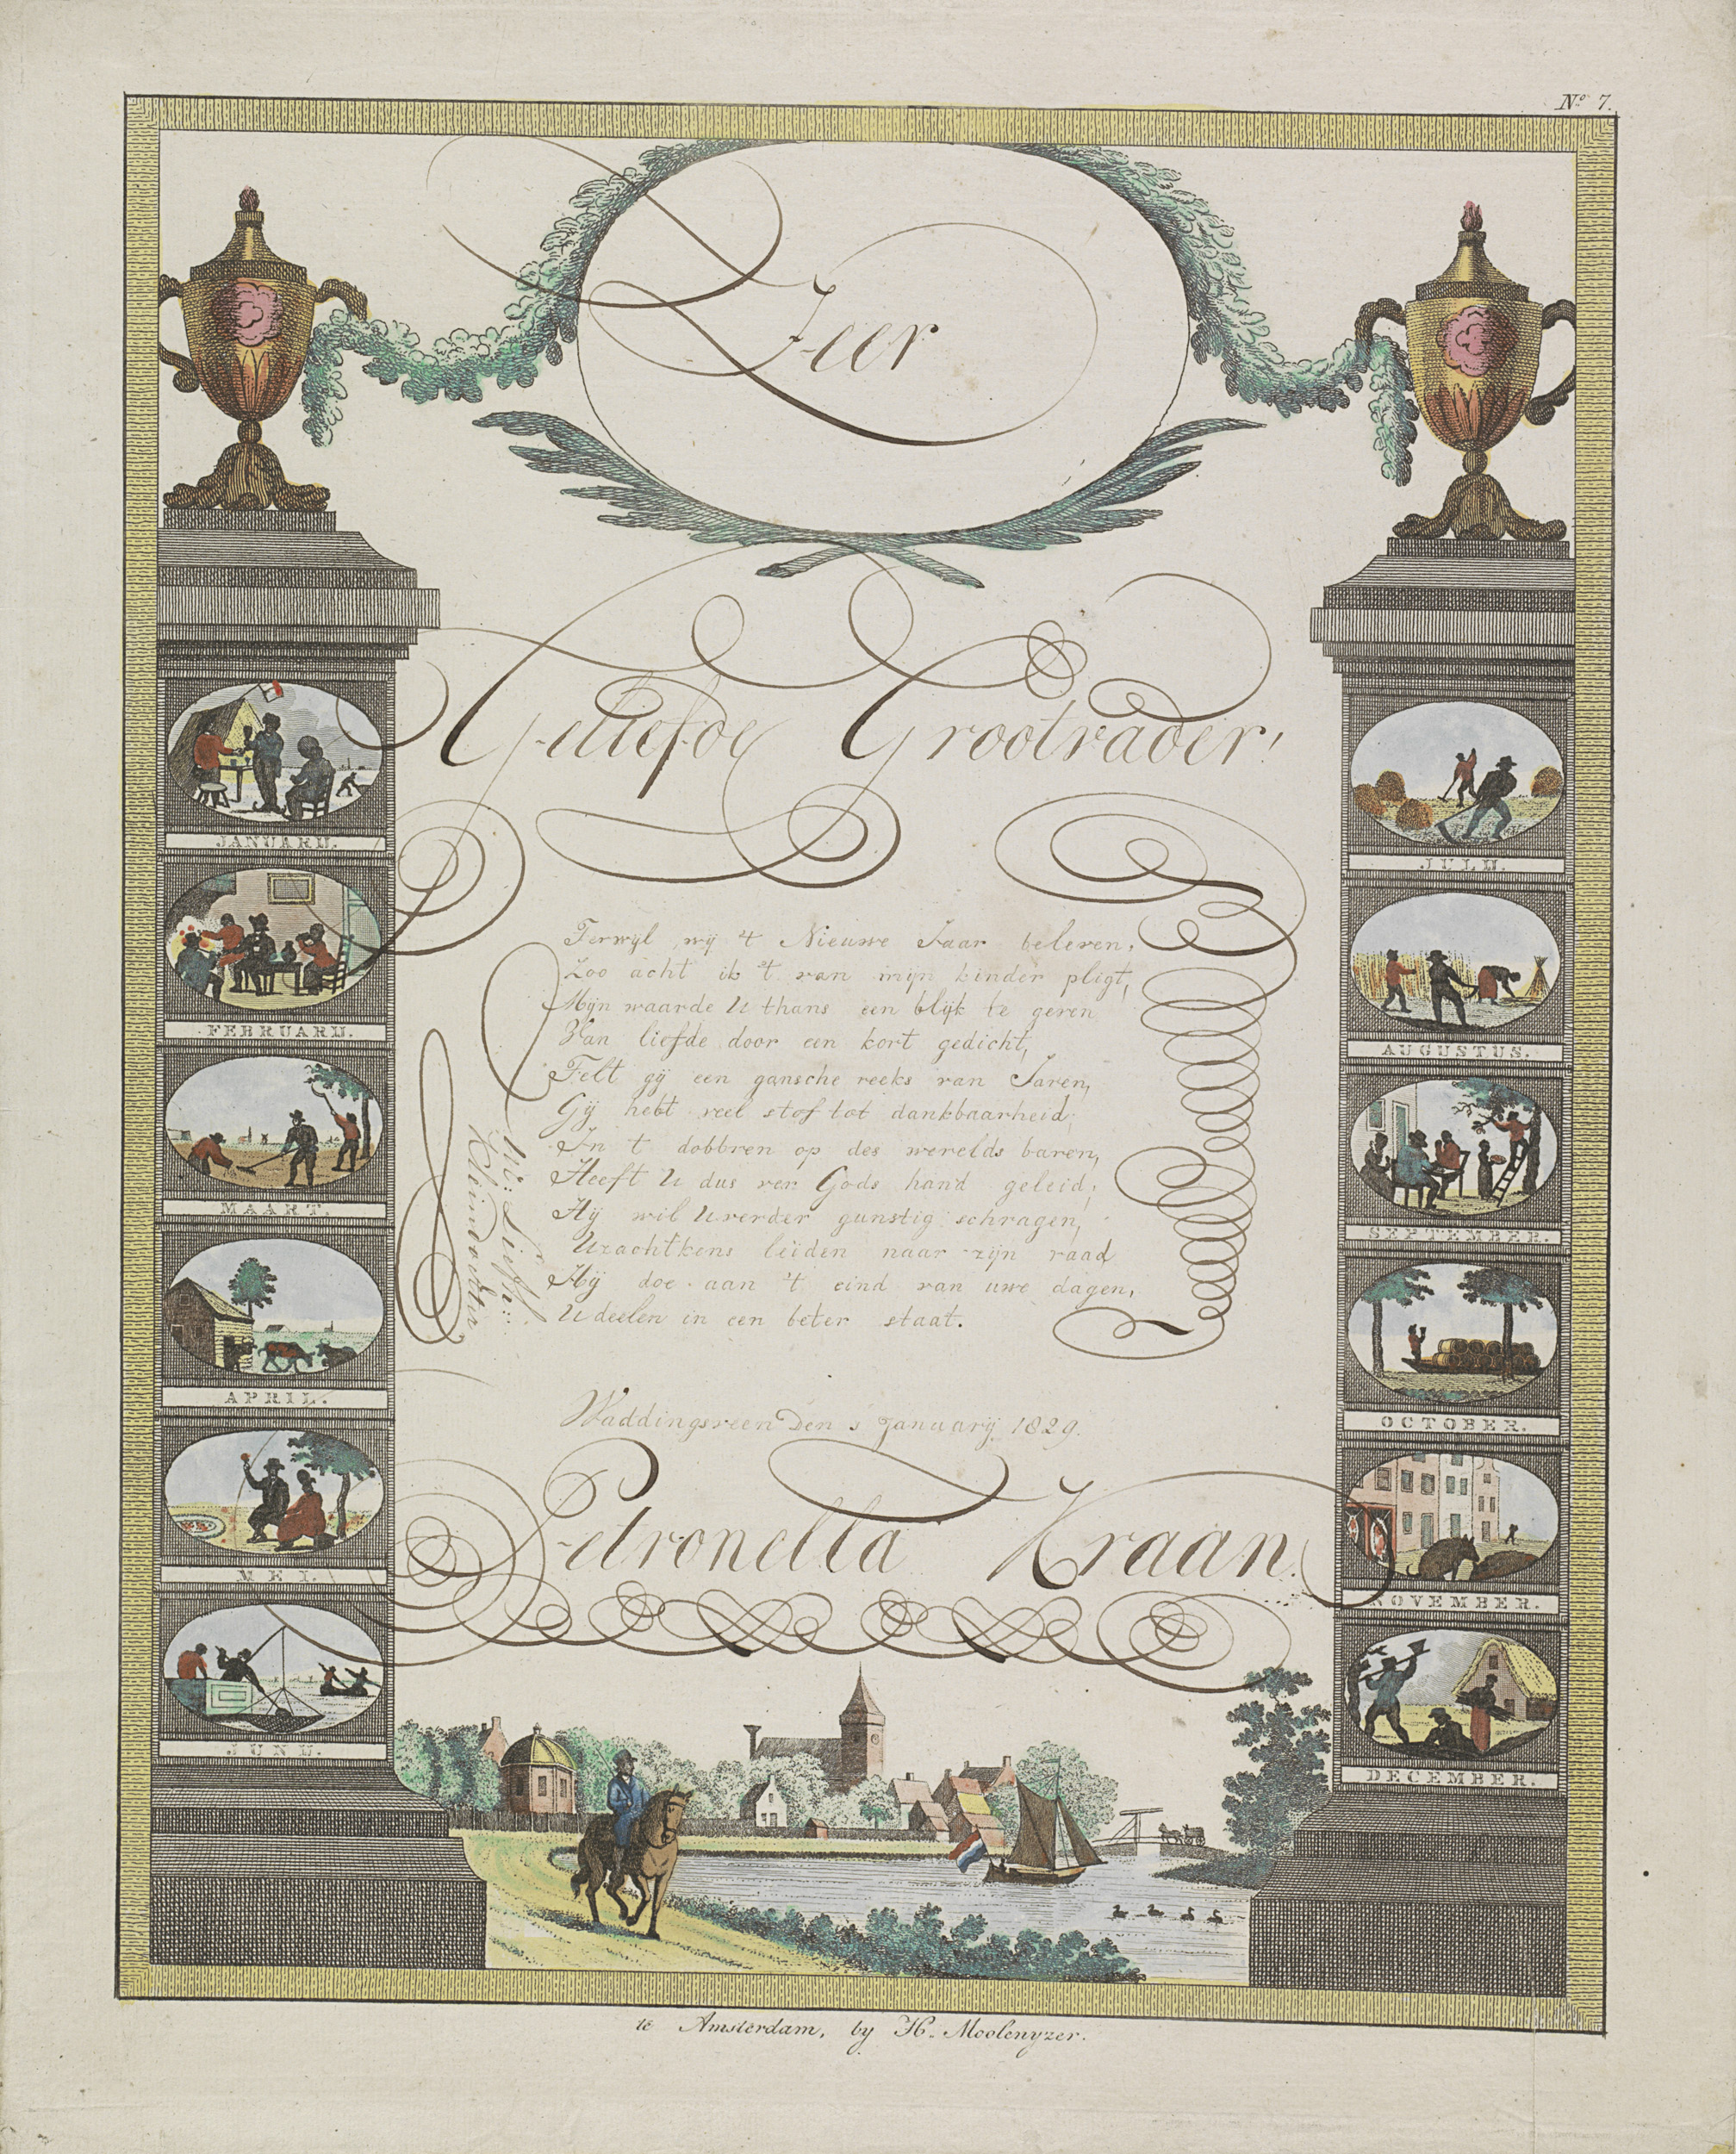 No. 7.
Zeer
Geliefde Grootvader!
Terwyl wij 't Nieuwe Jaar beleven,
Zoo acht ik 't van mijn kinder pligt,
Mijn waarde U thans een blijk te geven
Van liefde door een kort gedicht,
Telt gij een gansche reeks van Jaren,
Gij hebt veel stof tot dankbaarheid;
In t dobbren op des werelds baren,
Heeft U dus ver Gods hand geleid;
Hij wil U verder gunstig schragen,
U zachtkens leiden naar zijn raad
Hij doe aan 't eind van uwe dagen,
U deelen in een beter staat.
Uw: Liefh:
Kleindochter
Waddingsveen Den 1 January 1829.
Petronella Kraan.
JANUARIJ.
FEBRUARIJ.
MAART.
APRIL.
MEI.
JUNIJ.
JULIJ.
AUGUSTUS.
SEPTEMBER.
OCTOBER.
NOVEMBER.
DECEMBER.
te Amsterdam, by H. Moolenyzer.